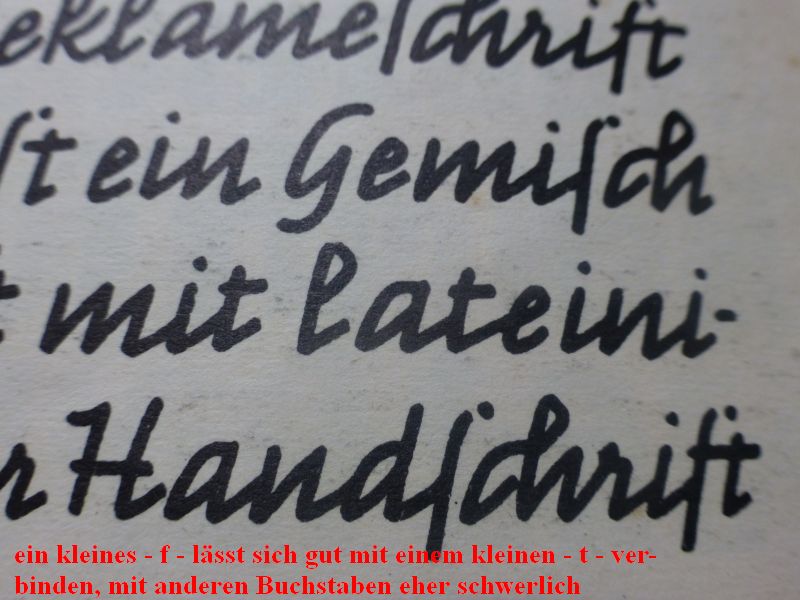 eklameſchrift
ſt ein Gemiſch
t mit lateini-
r Handſchrift
ein kleines - f - lässt sich gut mit einem kleinen - t - ver-
binden, mit anderen Buchstaben eher schwerlich